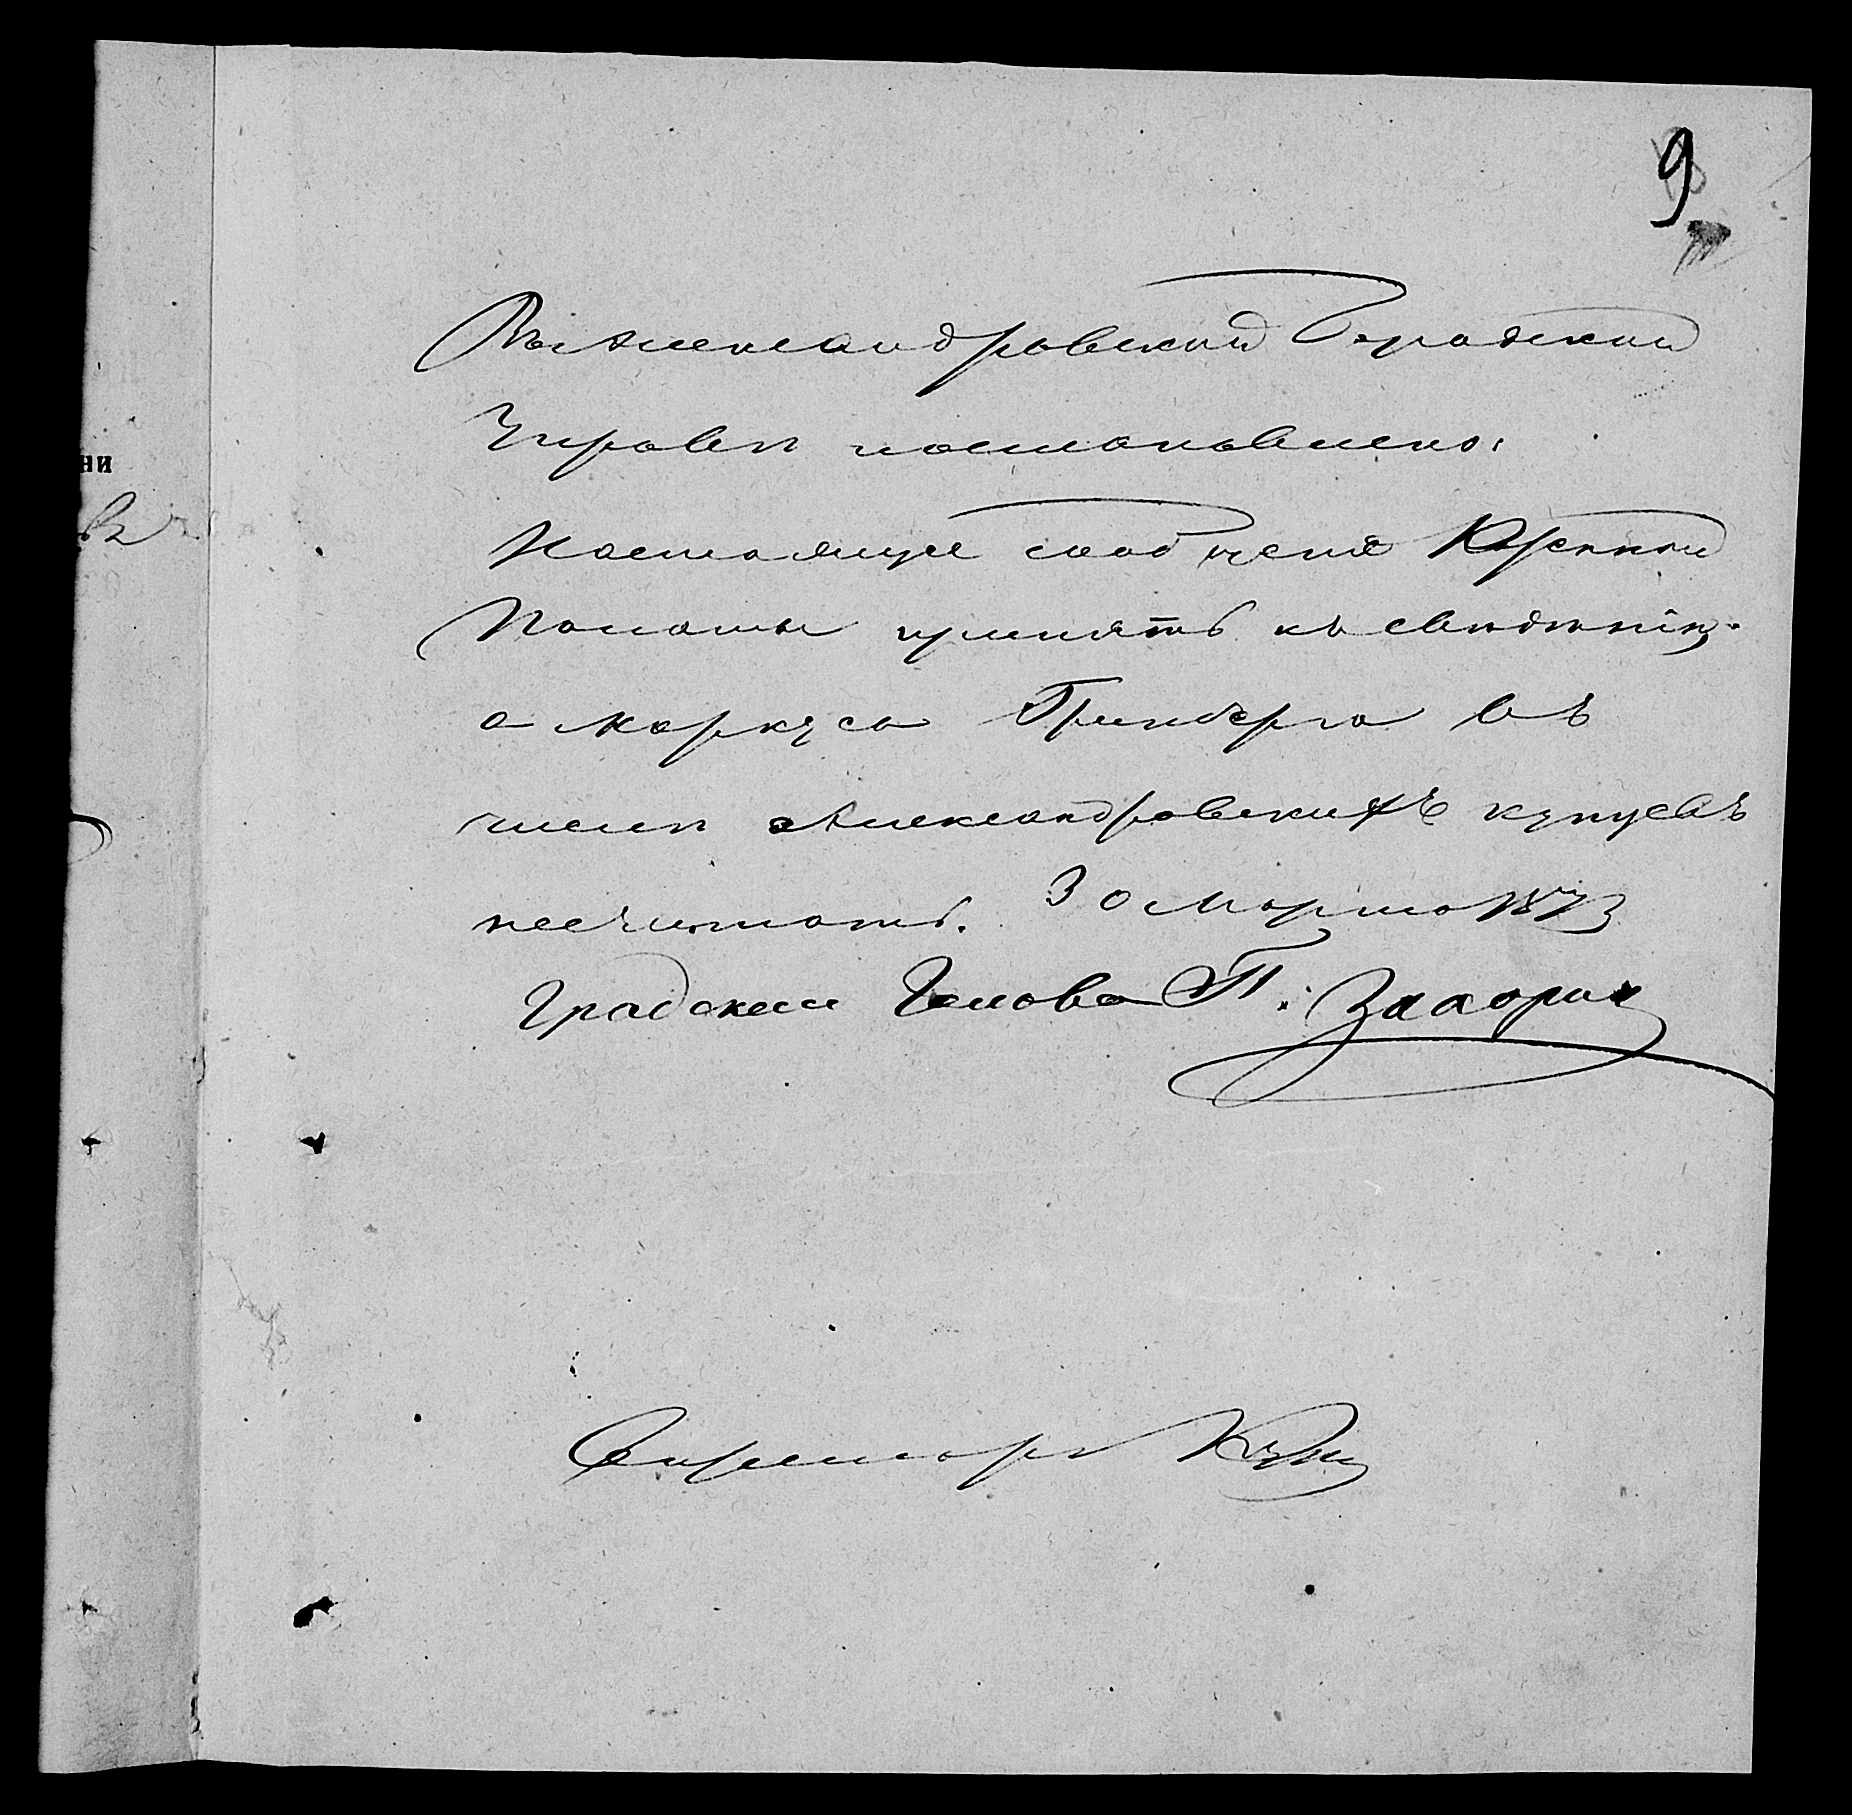 9
ни
Въ Александровской Городской
Управѣ постановлено:
Настоящее сообщеніе Казенной
Палаты принять къ свѣдѣнію,
а Маркуса Гринберга въ
числѣ Александровскихъ купцевъ
несчитать. 30 Марта 1873
Градской Голова П. Захарин
Секретарь